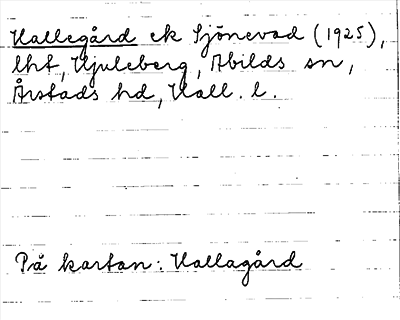 Hallegård ek Sjönevad (1925),
lht, Hjuleberg, Abilds sn,
Årstads hd, Hall. l.
På kartan: Hallagård